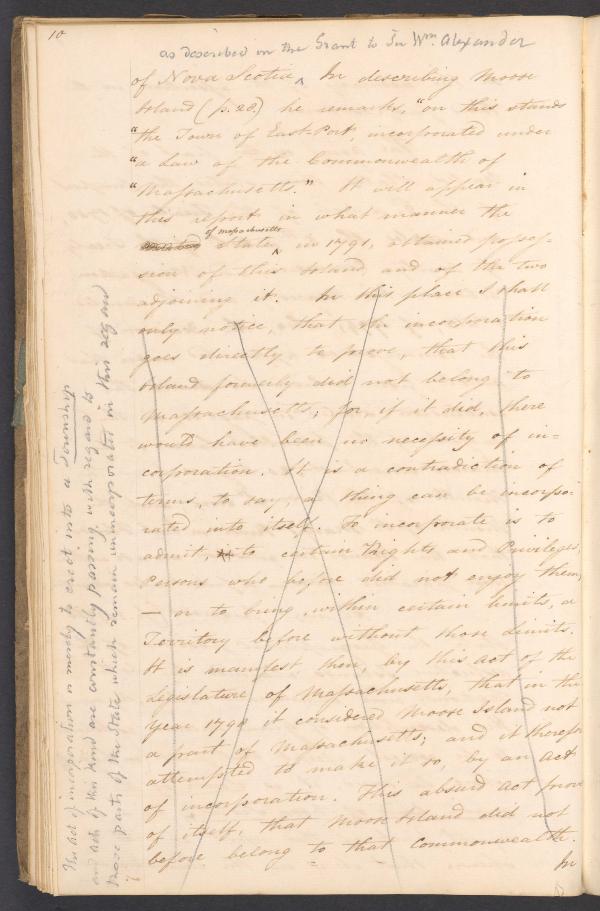 10
as described in the Grant to Sir Wm. Alexander
of Nova Scotia ^ In describing Moose
Island (p. 28.) he remarks, "on this stands
"the Town of East-Port, incorporated under
"a Law of the Commonwealth of
"Massachusetts." It will appear in
this report in what manner the
of Massachusetts
State ^ in 1791, obtained posses-
sion of this Island and of the two
adjoining it. In this place I shall
only notice, that the incorporation
goes directly to prove, that this
Island formerly did not belong to
Massachusetts; for, if it did, there
would have been no necessity of in=
corporation. It is a contradiction of
terms, to say, a thing can be incorpo-
rated into itself. To incorporate is to
admit, to certain Rights and Privileges,
Persons who before did not enjoy them,
— or to bring within certain limits, a
Territory before without those Limits.
It is manifest then, by this act of the
Legislature of Massachusetts, that in the
year 1798 it considered Moose Island not
a part of Massachusetts; and it therefore
attempted to make it so, by an Act
of incorporation. This absurd Act proves
of itself, that Moose Island did not
before belong to that Commonwealth.
In
The Act of incorporation is merely to erect into a Township
and acts of this kind are constantly passing with regard to
those parts of the State which remain unincorporated in this regard